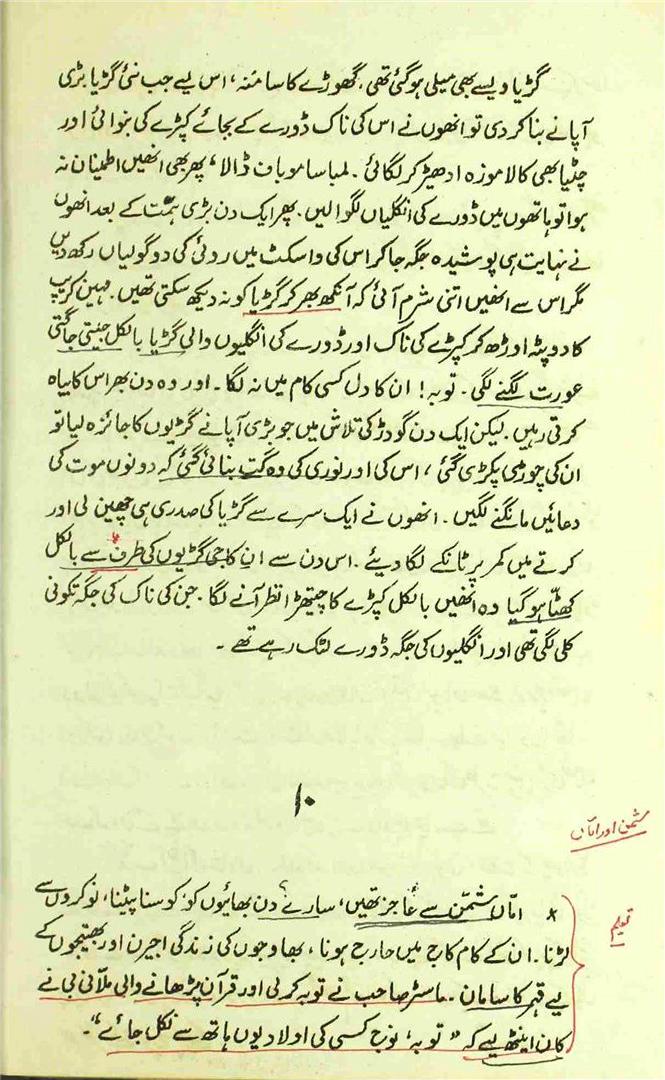 گڑیا ویسے بھی میلی ہو گئی تھی، گھوڑے کا سا منہ، اس لیے جب نئی گڑیا بڑی
آپا نے بنا کر دی تو انھوں نے اس کی ناک ڈورے کے بجائے کپڑے کی بنوائی اور
چٹیا بھی کالا موزہ ادھیڑ کر لگائی۔ لمبا سا موباف ڈالا، پھر بھی انھیں اطمینان نہ
ہوا تو ہاتھوں میں ڈورے کی انگلیاں لگوا لیں۔ پھر ایک دن بڑی ہمّت کے بعد انھوں
نے نہایت ہی پوشیدہ جگہ جا کر اس کی واسکٹ میں روئی کی دو گولیاں رکھ دیں
مگر اس سے انھیں اتنی شرم آئی کہ آنکھ بھر کر گڑیا کو نہ دیکھ سکتی تھیں۔ مہین کریپ
کا دوپٹہ اوڑھ کر کپڑے کی ناک اور ڈورے کی انگلیوں والی گڑیا بالکل جیتی جاگتی
عورت لگنے لگی۔ توبہ! ان کا دل کسی کام میں نہ لگا۔ اور وہ دن بھر اس کا بیاہ
کرتی رہیں۔ لیکن ایک دن گودڑ کی تلاش میں جو بڑی آپا نے گڑیوں کا جائزہ لیا تو
ان کی چوری پکڑی گئی، اس کی اور نوری کی وہ گت بنائی گئی کہ دونوں موت کی
دعائیں مانگنے لگیں۔ انھوں نے ایک سرے سے گڑیا کی صدری ہی چھین لی اور
کرتے میں کمر پر ٹانکے لگا دیئے۔ اس دن سے ان کا جی گڑیوں کی طرف سے بالکل
کھٹّا ہو گیا وہ انھیں بالکل کپڑے کا چیتھڑا نظر آنے لگا۔ جن کی ناک کی جگہ تکونی
کلی لگی تھی اور انگلیوں کی جگہ ڈورے لٹک رہے تھے۔
۱۰
شمن اور اماں
اماں شمّن سے عاجز تھیں، سارے دن بھائیوں کو کوسنا پیٹنا، نوکروں سے
تعلیم
لڑنا۔ ان کے کام کاج میں حارج ہونا، بھاوجوں کی زندگی اجیرن اور بھتیجوں کے
لیے قہر کا سامان۔ ماسٹر صاحب نے توبہ کر لی اور قرآن پڑھانے والی ملّانی بی نے
کان اینٹھ لیے کہ ”توبہ، نوج کسی کی اولاد یوں ہاتھ سے نکل جائے“۔